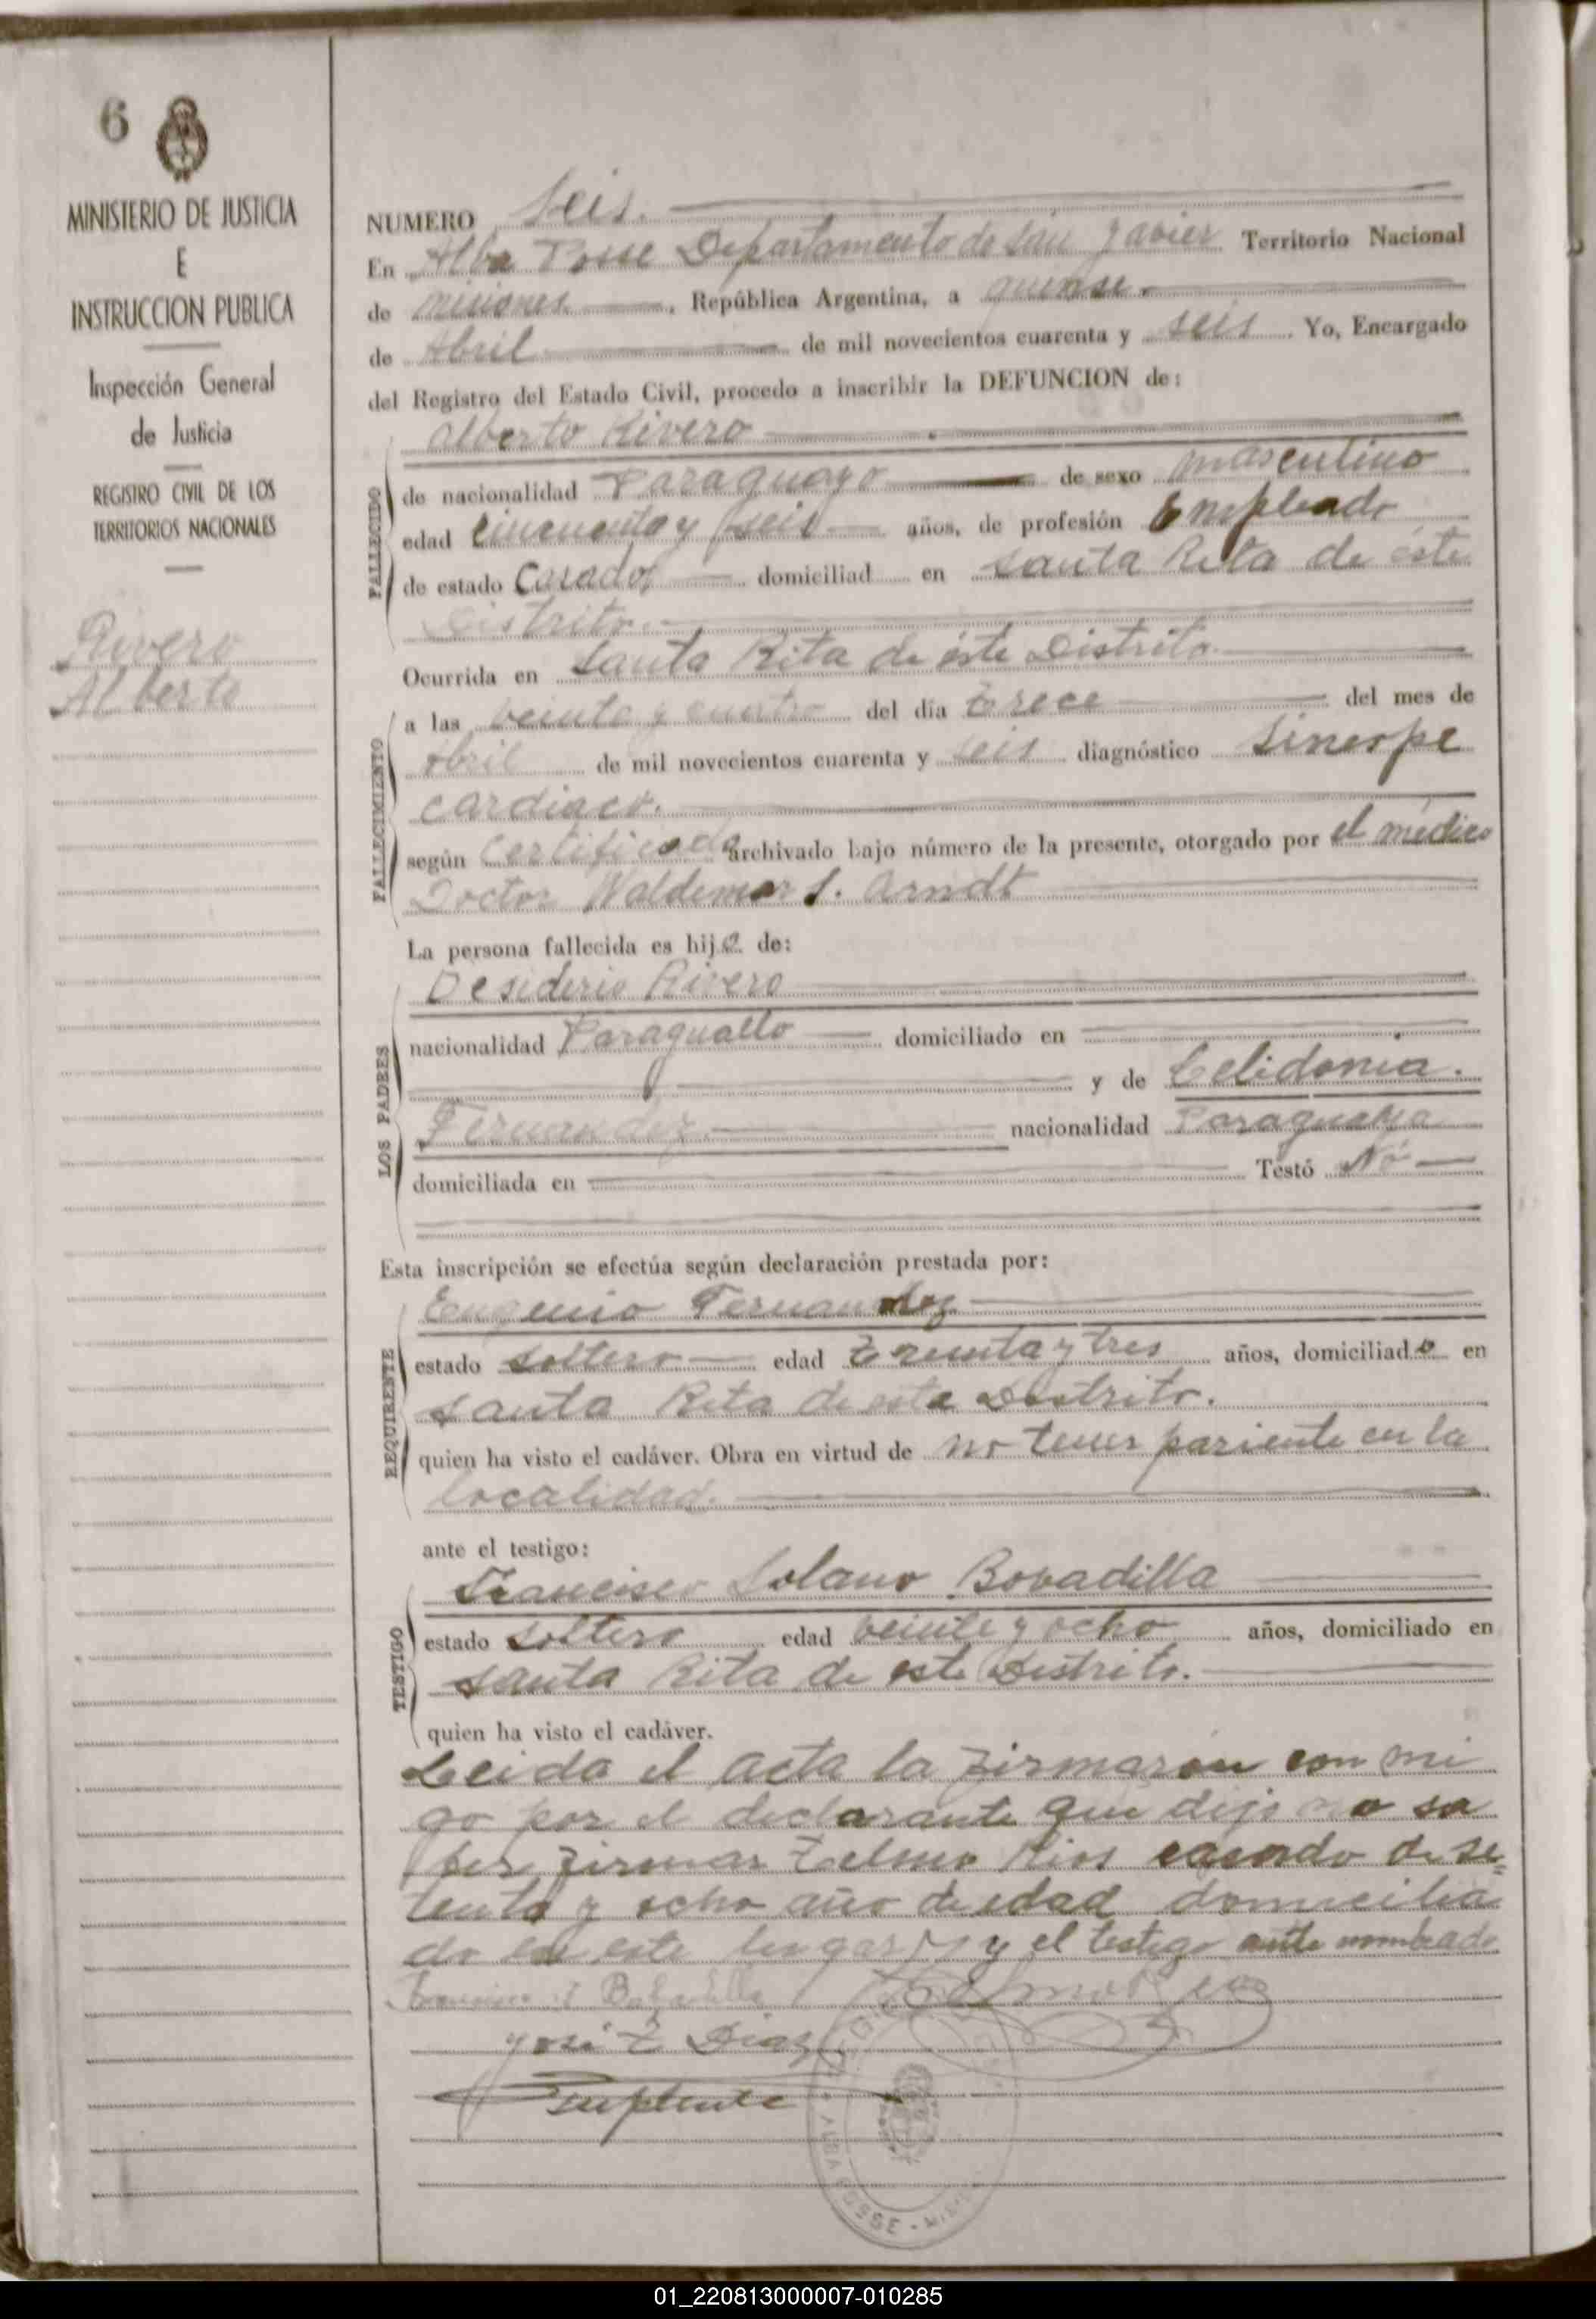 6
MINISTERIO DE JUSTICIA
E
INSTRUCCION PUBLICA
Inspección General
de Justicia
REGISTRO CIVIL DE LOS
TERRITORIOS NACIONALES
Rivero
Alberto
NUMERO Seis.
En Alba Posse Departamento de San Javier Territorio Nacional
de Misiones, República Argentina, a quinse.
de Abril de mil novecientos cuarenta y seis. Yo, Encargado
del Registro del Estado Civil, procedo a inscribir la DEFUNCION de:
Alberto Rivero
FALLECIDO
de nacionalidad Paraguayo de sexo masculino
edad Cincuenta y seis años, de profesión Empleado
de estado Casado domiciliad en Santa Rita de éste
Distrito.
Ocurrida en Santa Rita de éste Distrito.
FALLECIMIENTO
a las veinte y cuatro del día trece del mes de
Abril de mil novecientos cuarenta y seis diagnóstico Sinespe
cardiaco.
según Certificado archivado bajo número de la presente, otorgado por el médico
Doctor Waldemar S. Arndt
La persona fallecida es hijo de:
LOS PADRES
Desiderio Rivero
nacionalidad Paraguallo domiciliado en
y de Celidonia.
Fernandez. nacionalidad Paraguaya
domiciliada en Testó No
Esta inscripción se efectúa según declaración prestada por:
REQUIRENTE
Eugenio Fernandez
estado soltero edad treinta y tres años, domiciliado en
Santa Rita de este Distrito.
quien ha visto el cadáver. Obra en virtud de no tener pariente en la
localidad.
ante el testigo:
TESTIGO
Francisco Solano Bobadilla
estado soltero edad veinte y ocho años, domiciliado en
Santa Rita de este Distrito.
quien ha visto el cadáver.
Leida el acta la firmaron con mi
go por el declarante que dijo no sa
ber firmar Telmo Rios casado de se=
tenta y ocho año de edad domicilia
do en este lugar y el testigo ante nombrado
Francisco S Bobadilla Telmo Rios
José Z Diaz
Suplente
ALBA POSSE - MIS
01_220813000007-010285